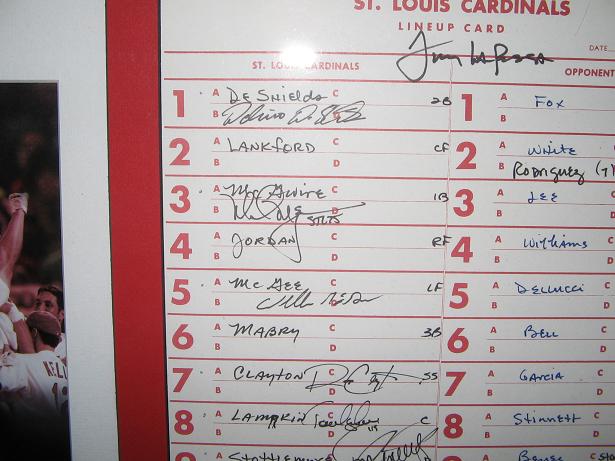 ST. LOUIS CARDINALS
LINEUP CARD
Tony LaRussa
DATE
ST. LOUIS CARDINALS
OPPONENT
1 A DeShields C 2B
B Delino DeShields D
2 A LANKFORD C CF
B D
3 A McGwire C 1B
B STLTS D
4 A JORDAN C RF
B D
5 A McGee C LF
B Willie McGee D
6 A MABRY C 3B
B D
7 A CLAYTON C SS
B D
8 A LAMPKIN C C
B D
9 A Stottlemyre
1 A FOX
B
2 A White
B Rodriguez
3 A LEE
B
4 A Williams
B
5 A Dellucci
B
6 A Bell
B
7 A GARCIA
B
8 A Stinnett
B